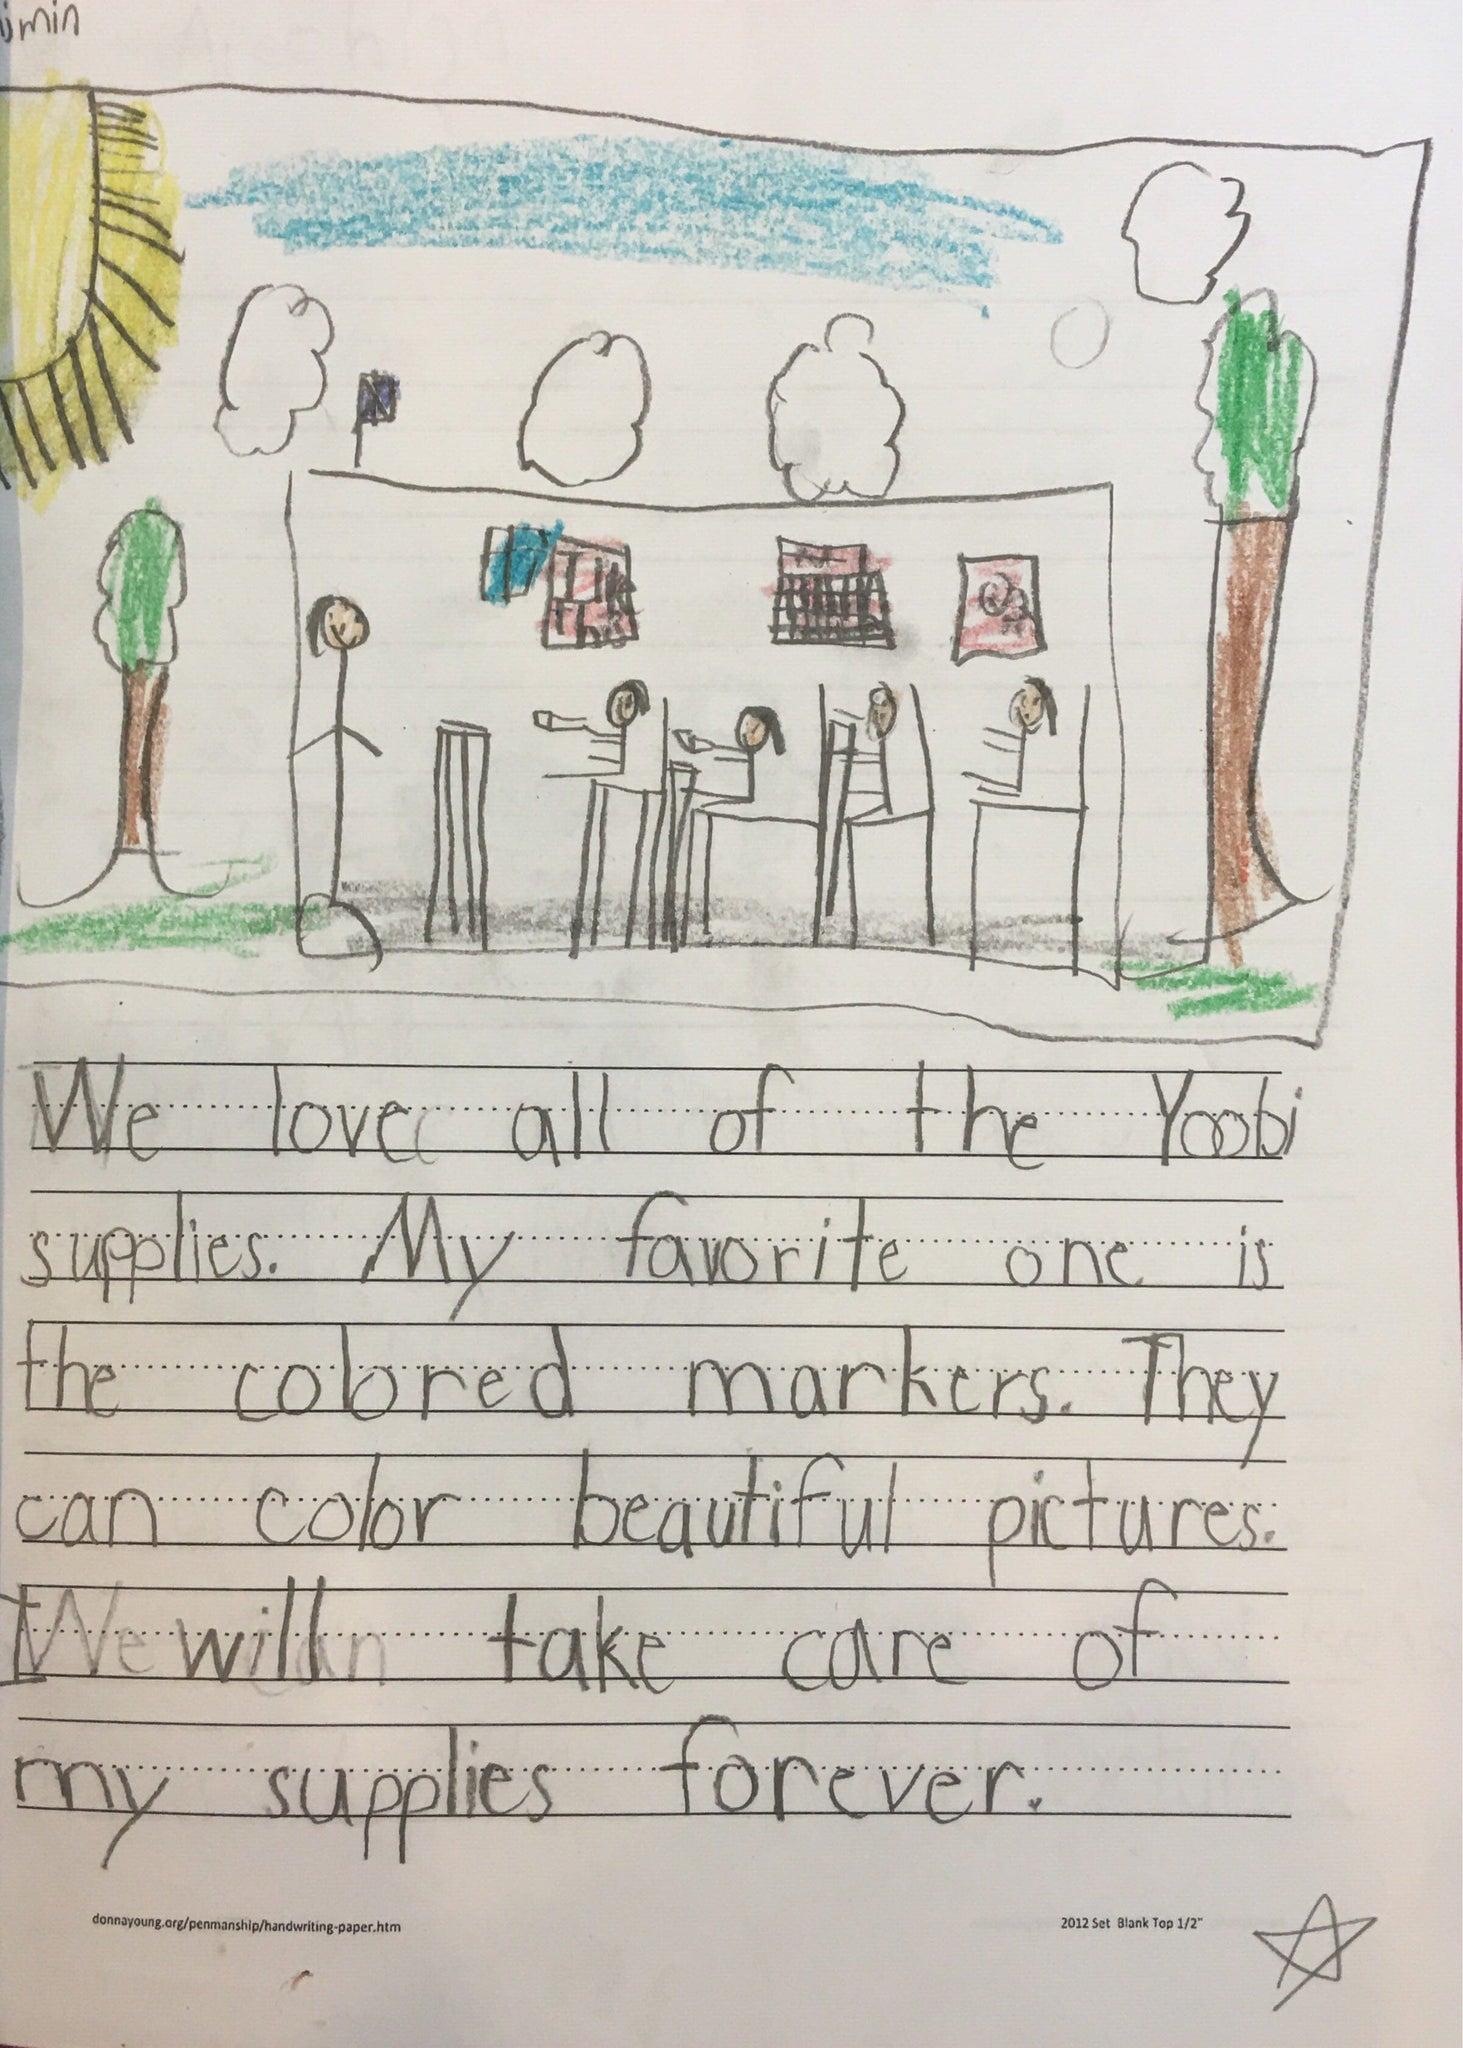 We love all of the Yoobi
supplies. My favorite one is
the colored markers. They
can color beautiful pictures.
I will take care of
my supplies forever.
donnayoung.org/penmanship/handwriting-paper.htm
2012 Set Blank Top 1/2"